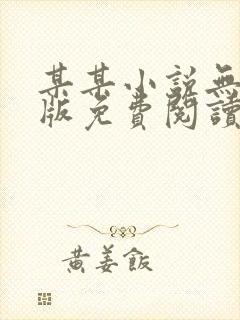 某某小说無
版免費閱讀
黄姜飯